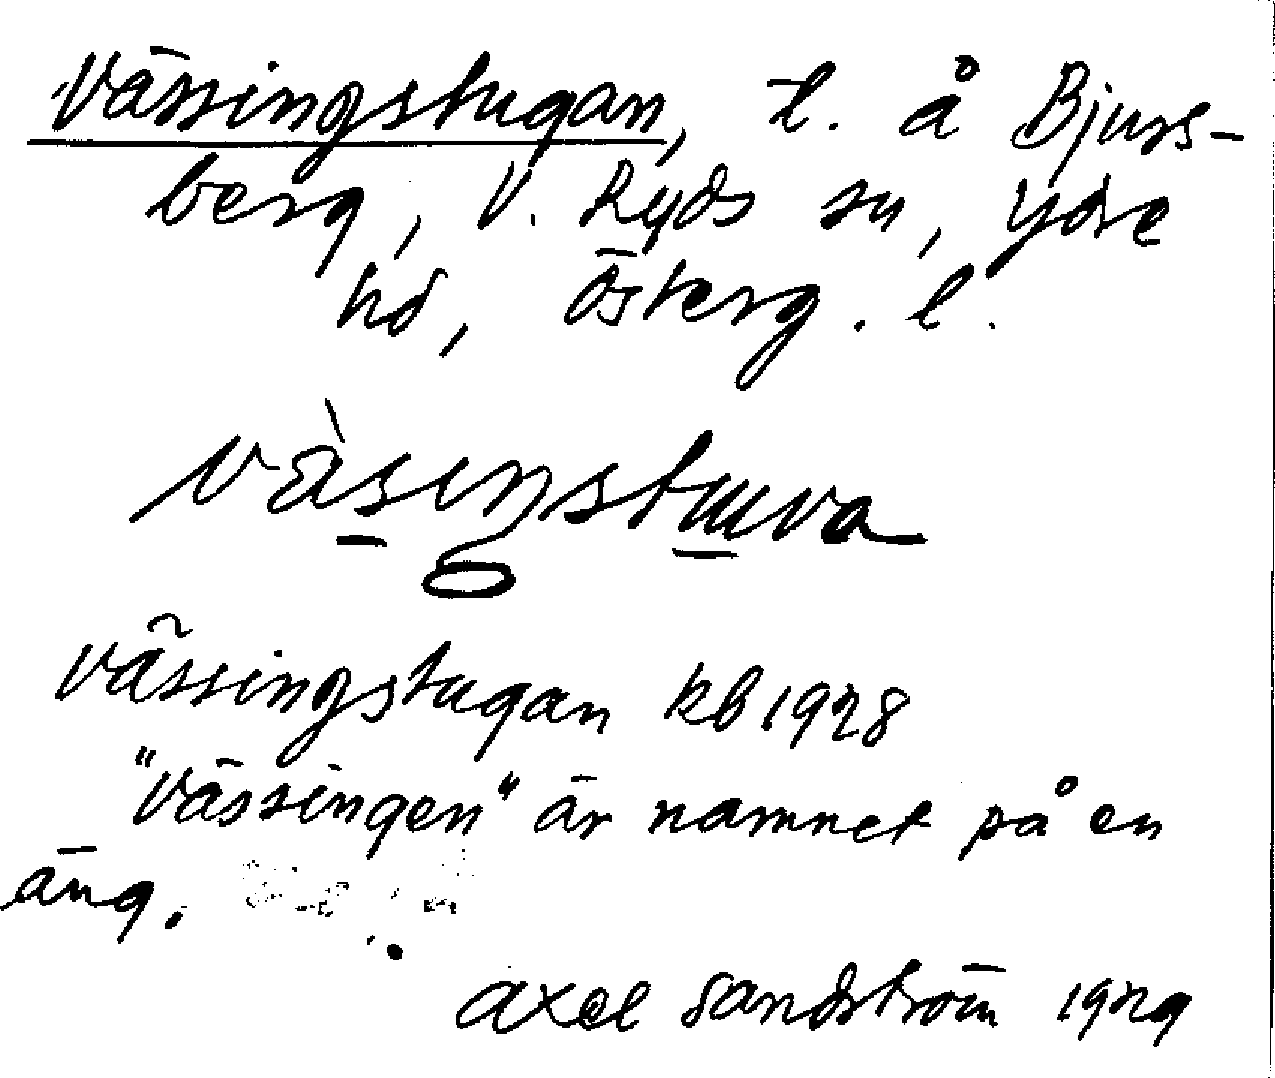 Vässingstugan, t. å Bjurs-
berg, V. Ryds sn, Ydre
hd, Österg. l.
väsiŋstuva
Vässingstugan kb 1928
"Vässingen" är namnet på en
äng.
Axel Sandström 1929